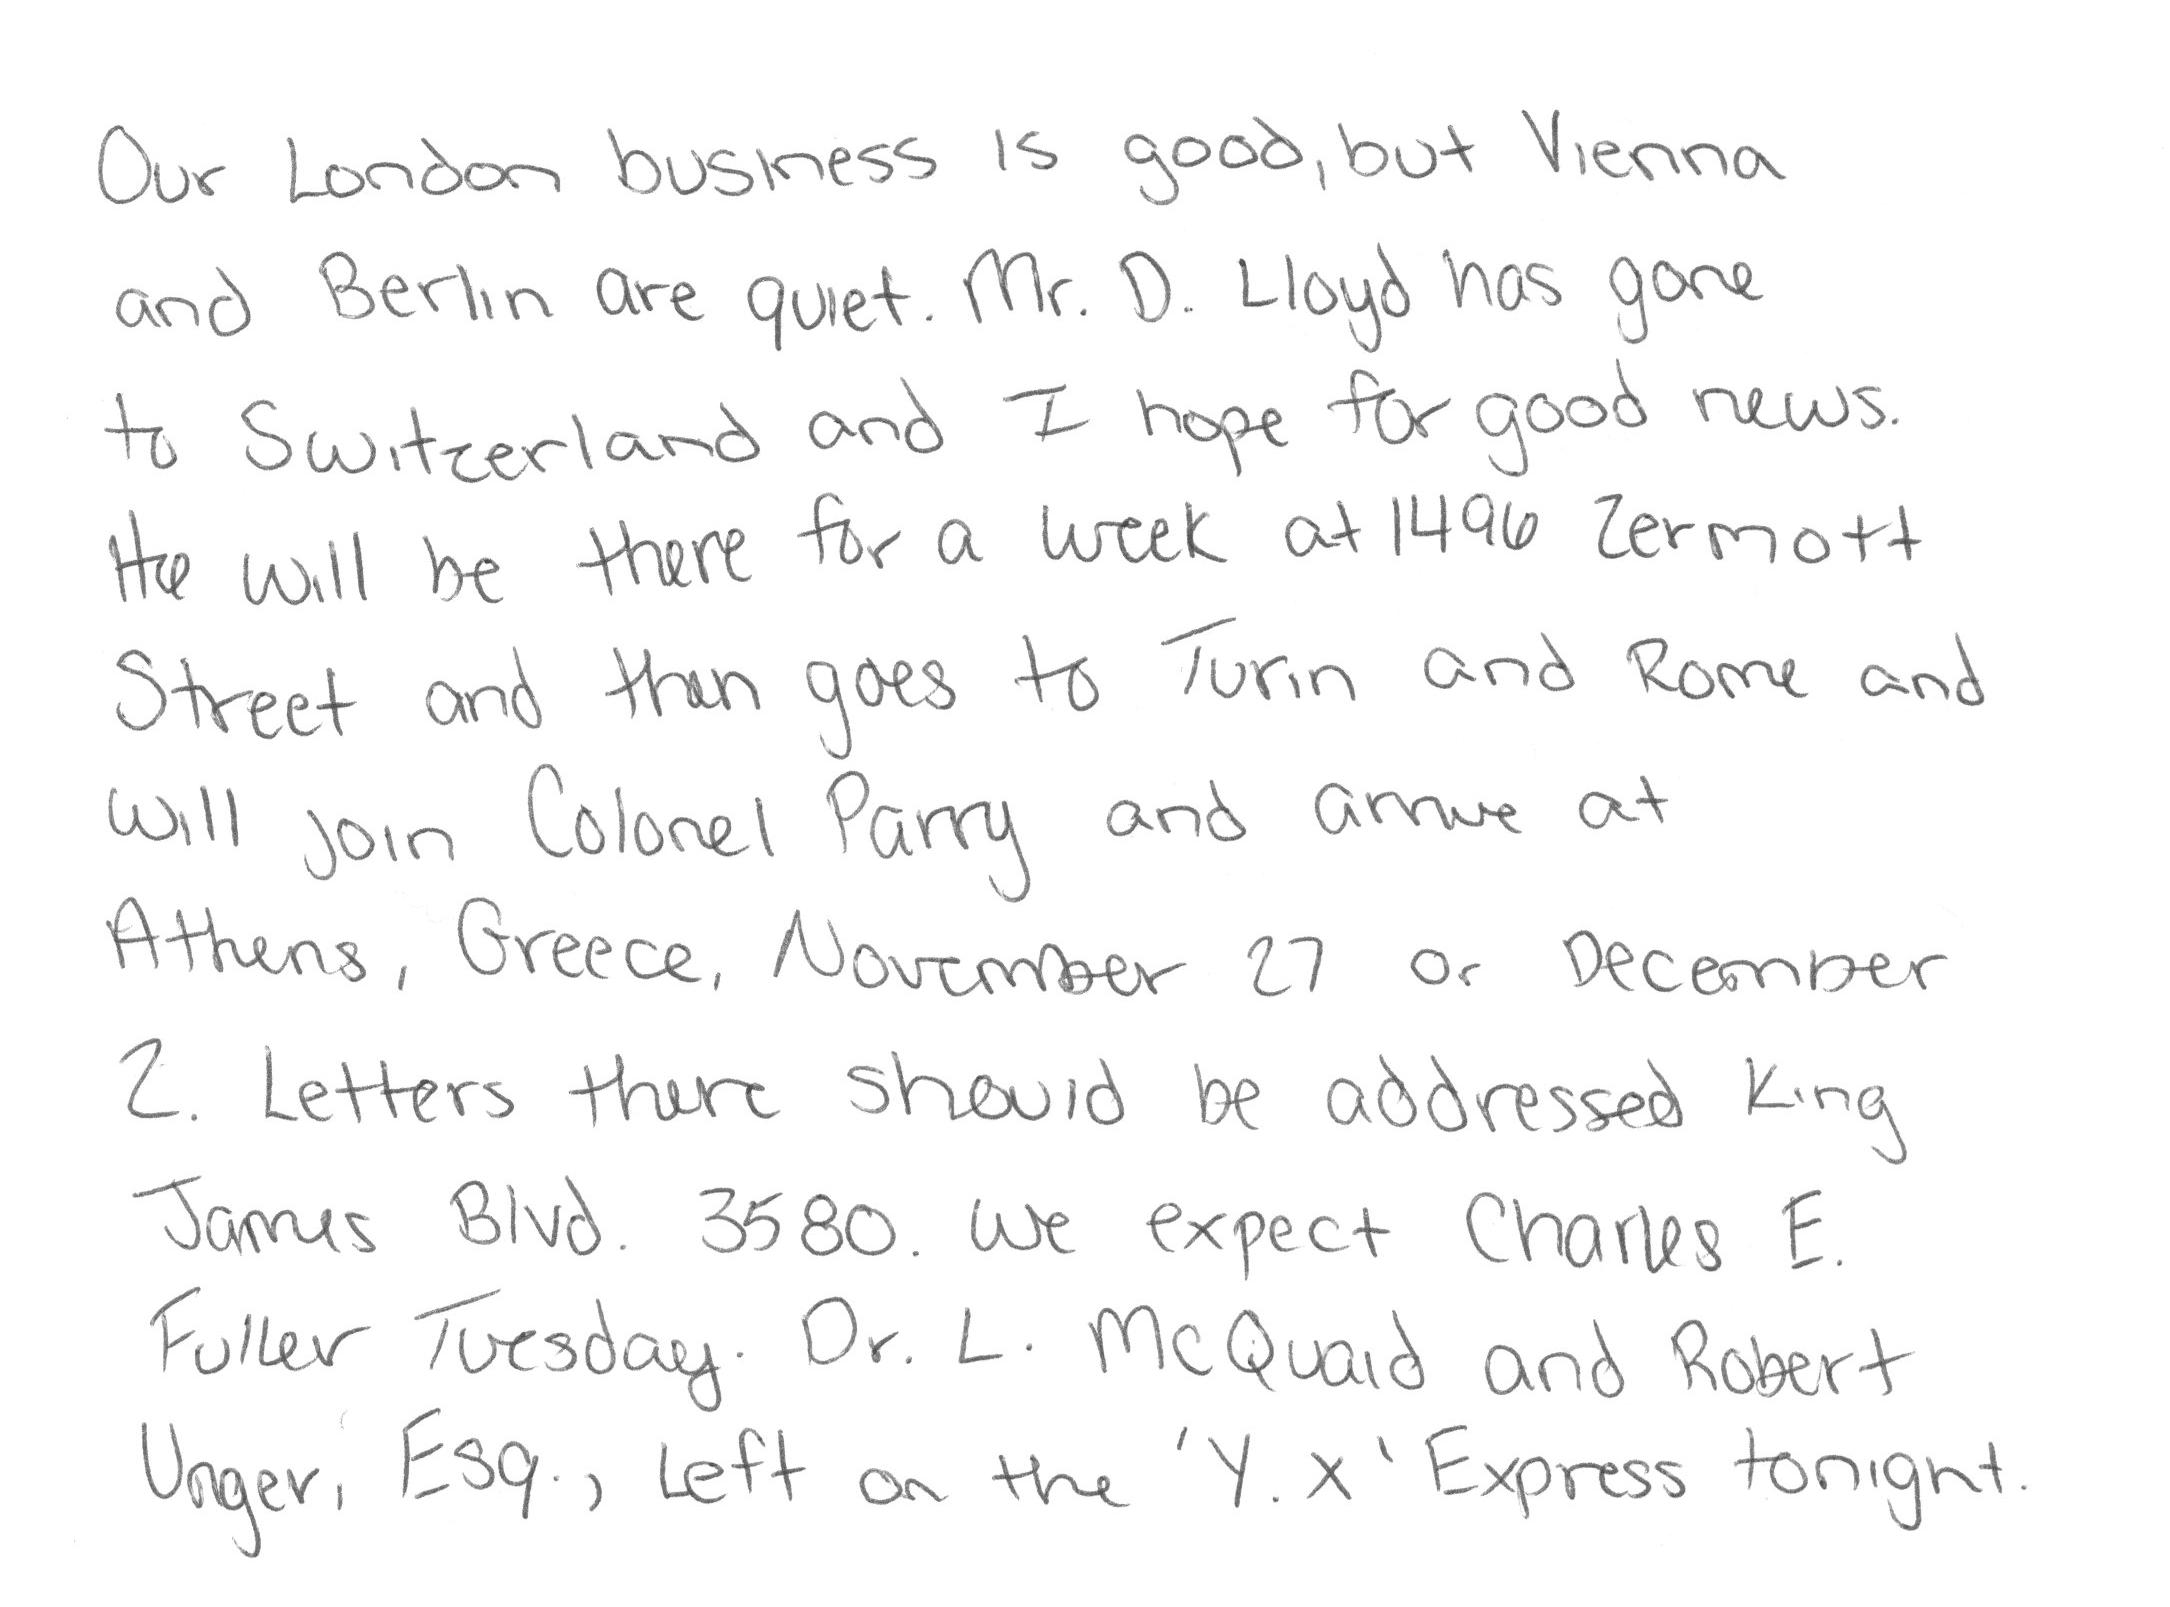 Our London business is good, but Vienna
and Berlin are quiet. Mr. D. Lloyd has gone
to Switzerland and I hope for good news.
He will be there for a week at 1496 Zermott
Street and then goes to Turin and Rome and
will join Colonel Parry and arrive at
Athens, Greece, November 27 or December
2. Letters there should be addressed King
James Blvd. 3580. We expect Charles E.
Fuller Tuesday. Dr. L. McQuaid and Robert
Unger, Esq., left on the 'Y.X' Express tonight.